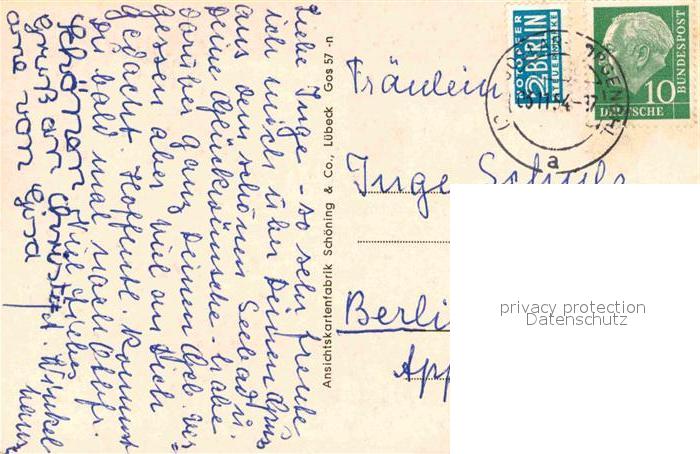 Liebe Inge - so sehr freute
ich mich über Deinen Gruß
aus dem schönen Seebad u.
Deine Glückwünsche. habe
darüber ganz Deinen Geb. ver-
gessen aber viel an Dich
gedacht. Hoffentl. kommst
Du bald mal nach
Viel liebes
Schönen
Gruß an
von Gisa
Ansichtskartenfabrik Schöning & Co., Lübeck Gos 57 -n
NOTOPFER
2 BERLIN
STEUERMARKE
DEUTSCHE
BUNDESPOST
10
a
Fräulein
Inge Schulz
Berli
App
privacy protection
Datenschutz